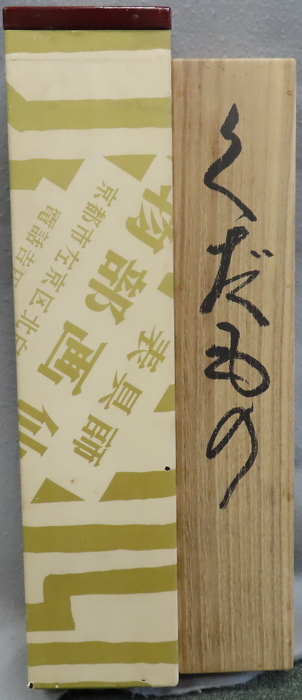 くだもの
物部画仙
表具師
京都市左京区北
電話吉田